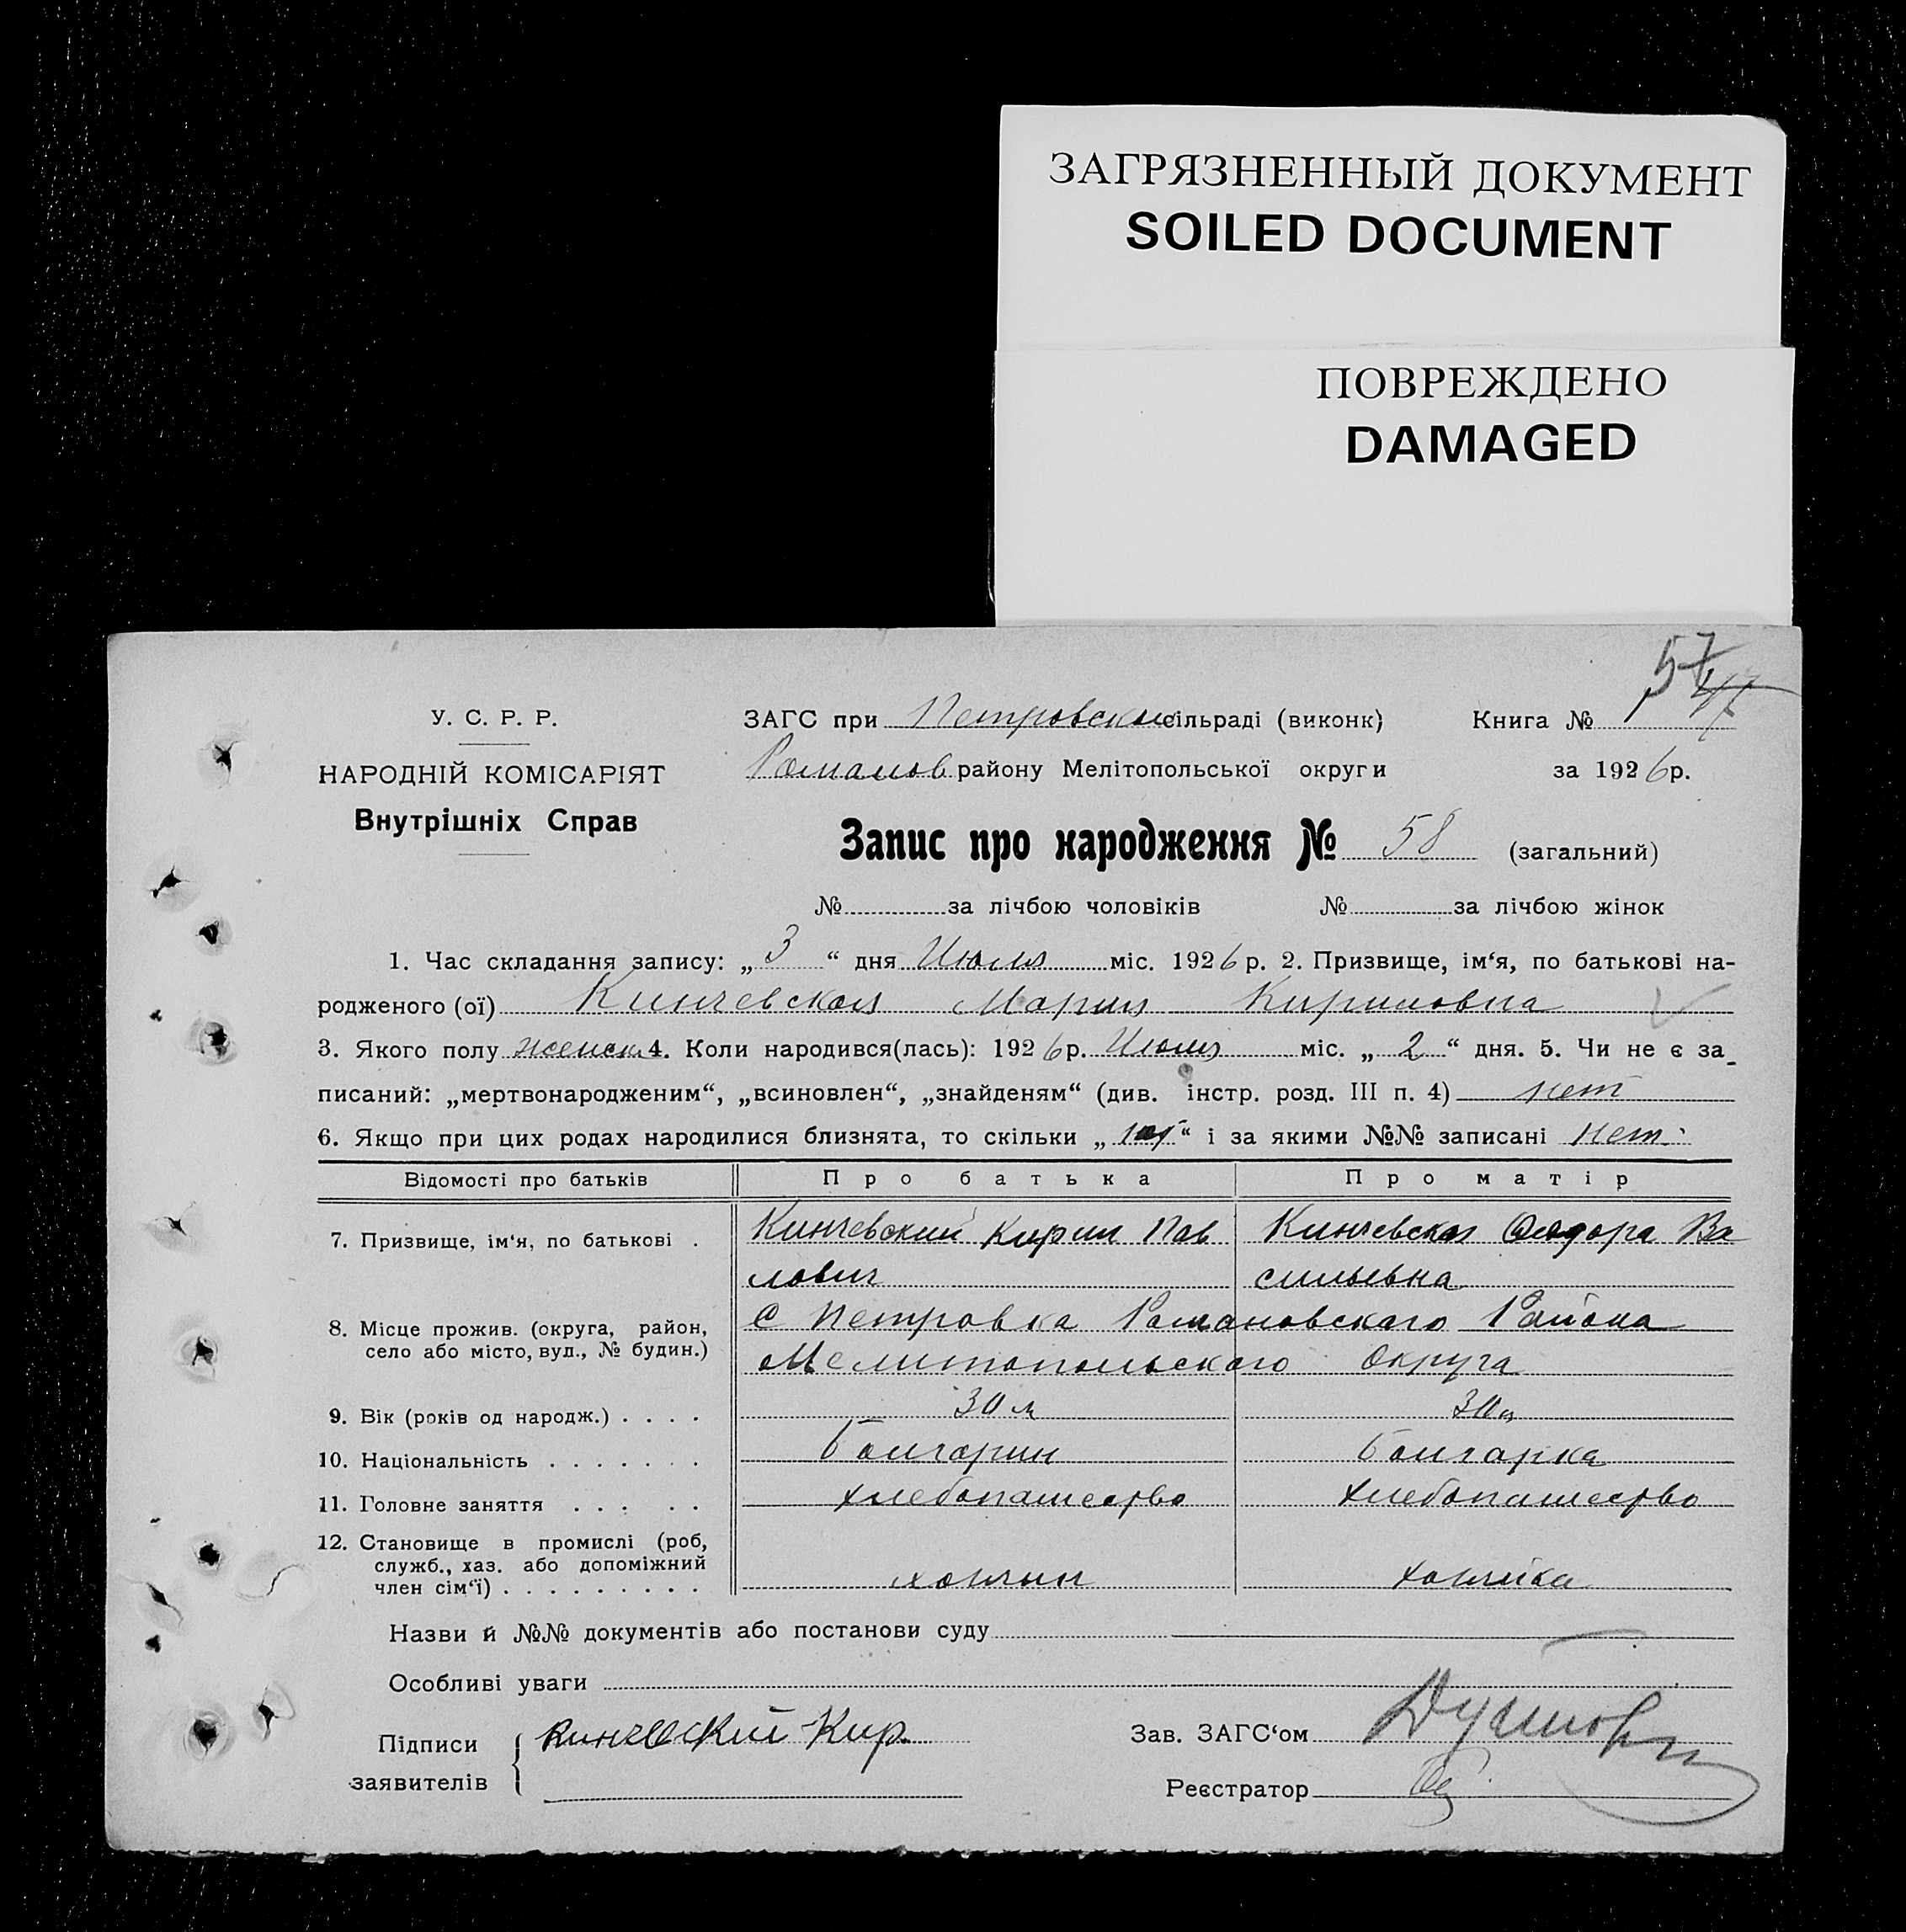 ЗАГРЯЗНЕННЫЙ ДОКУМЕНТ
SOILED DOCUMENT
ПОВРЕЖДЕНО
DAMAGED
57
47
У. С. Р. Р.
ЗАГС при Петровском сільраді (виконк) Книга № 1
НАРОДНІЙ КОМІСАРІЯТ
Романов району Мелітопольської округи за 1926 р.
Внутрішніх Справ
Запис про народження № 58 (загальний)
№ за лічбою чоловіків № за лічбою жінок
1. Час складання запису: „ 3 “ дня Июля міс. 1926 р. 2. Призвище, ім‘я, по батькові на-
родженого (ої) Кинчевская Мария Кириловна
3. Якого полу женск. 4. Коли народився(лась): 1926 р. Июля міс. „ 2 “ дня. 5. Чи не є за-
писаний: „мертвонародженим“, „всиновлен“, „знайденям“ (див. інстр. розд. III п. 4) нет
6. Якщо при цих родах народилися близнята, то скільки „ “ і за якими №№ записані нет
Відомості про батьків Про батька Про матір
7. Призвище, ім‘я, по батькові . Кинчевский Кирил Пав Кинчевская Феодора Ва
лович сильевна
8. Місце прожив. (округа, район, село або місто, вул., № будин.) С Петровка Романовского Района
Мелитопольского Округа
9. Вік (років од народж.) . . . . 30 л 30 л
10. Національність . . . . . . . Болгарин Болгарка
11. Головне заняття . . . . . хлебопашество хлебопашество
12. Становище в промислі (роб,
служб., хаз. або допоміжний
член сім‘ї) . . . . . . . . .
Назви й №№ документів або постанови суду
Особливі уваги
Підписи Кинчевский Кир. Зав. ЗАГС‘ом
заявителів Реєстратор